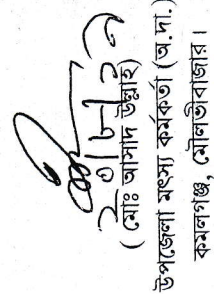 (মোঃ আসাদ উল্লাহ)
উপজেলা মৎস্য কর্মকর্তা (অ.দা.)
কমলগঞ্জ, মৌলভীবাজার।